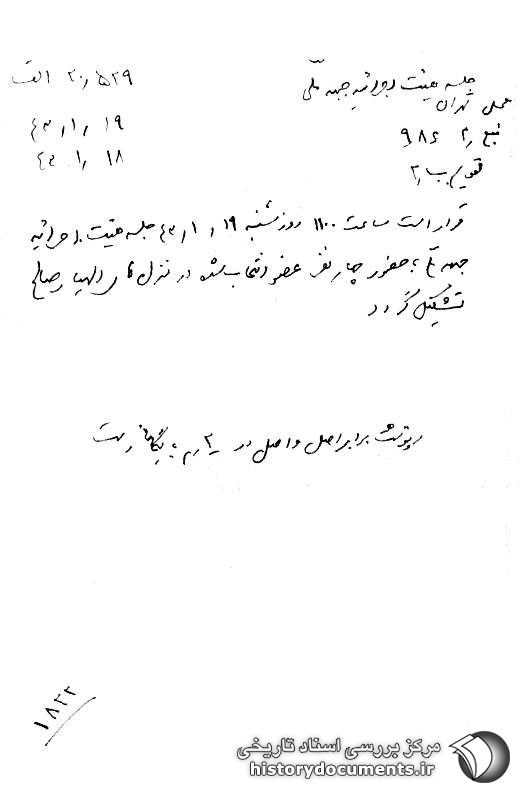 جلسه هیئت اجرائیه جبهه ملی
۲۰/۵۲۹ الف
محل تهران
۱۹/۱/۴۳
منبع ۹۸۶
۱۸/۱/۴۳
تقویم ب/۲
قرار است ساعت ۱۱۰۰ روز شنبه ۱۹/۱/۴۳ جلسه هیئت اجرائیه
جبهه ملی با حضور چهار نفر عضو انتخاب شده در منزل اللهیار صالح
تشکیل گردد
رونوشت برابر اصل و اصل در بایگانی است
۱۸۲۲
مرکز بررسی اسناد تاریخی
historydocuments.ir